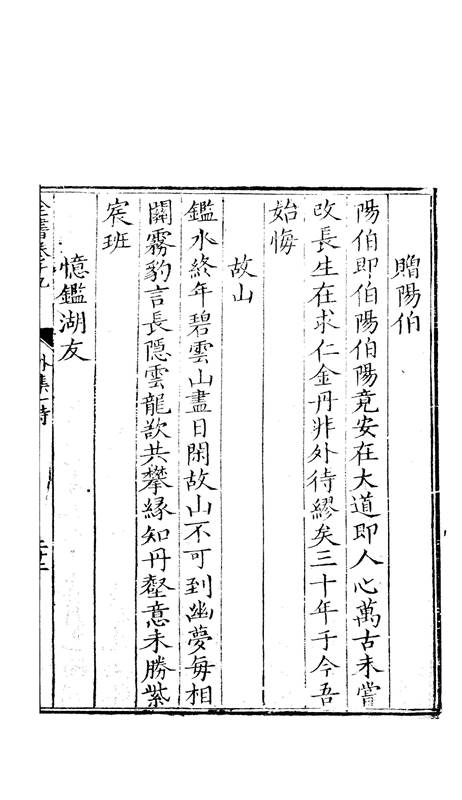 贈陽伯
陽伯即伯陽伯陽竟安在大道即人心萬古未嘗
改長生在求仁金丹非外待繆矣三十年于今吾
始悔
故山
鑑水終年碧雲山盡日閑故山不可到幽夢每相
關霧豹言長隱雲龍欲共攀縁知丹壑意未勝紫
宸班
憶鑑湖友
外集一詩